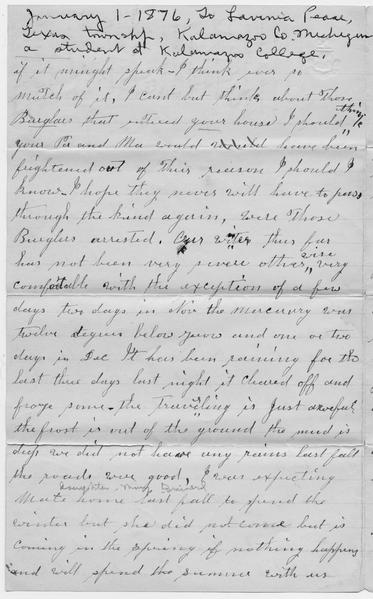 January 1-1876, To Lavinia Pease,
Texas township, Kalamazoo Co. Michigan
a student at Kalamazoo College.
if it minght speak - I think ever so
mutch of it, I cant but think about Those
Burglars that entired your house I should think
your Pa and Ma would have been
frightened out of their reason I should I
know - I hope they never will have to pass
through the kind again, were Those
Burglars arrested. Our winter thus far
has not been very severe other wise very
comfortable with the exception of a few
days two days in Nov the murcury was
twelve degrees below zero and one or two
days in Dec It has been raining for the
last three days last night it cleared off and
froze some - the Traveling is Just awful
the frost is out of the ground the mud is
deep we did not have any rains last fall
the roads were good, I was expecting
daughter Mary
Mate home last fall to spend the
winter but she did not come but is
coming in the spring if nothing happens
and will spend the summer with us